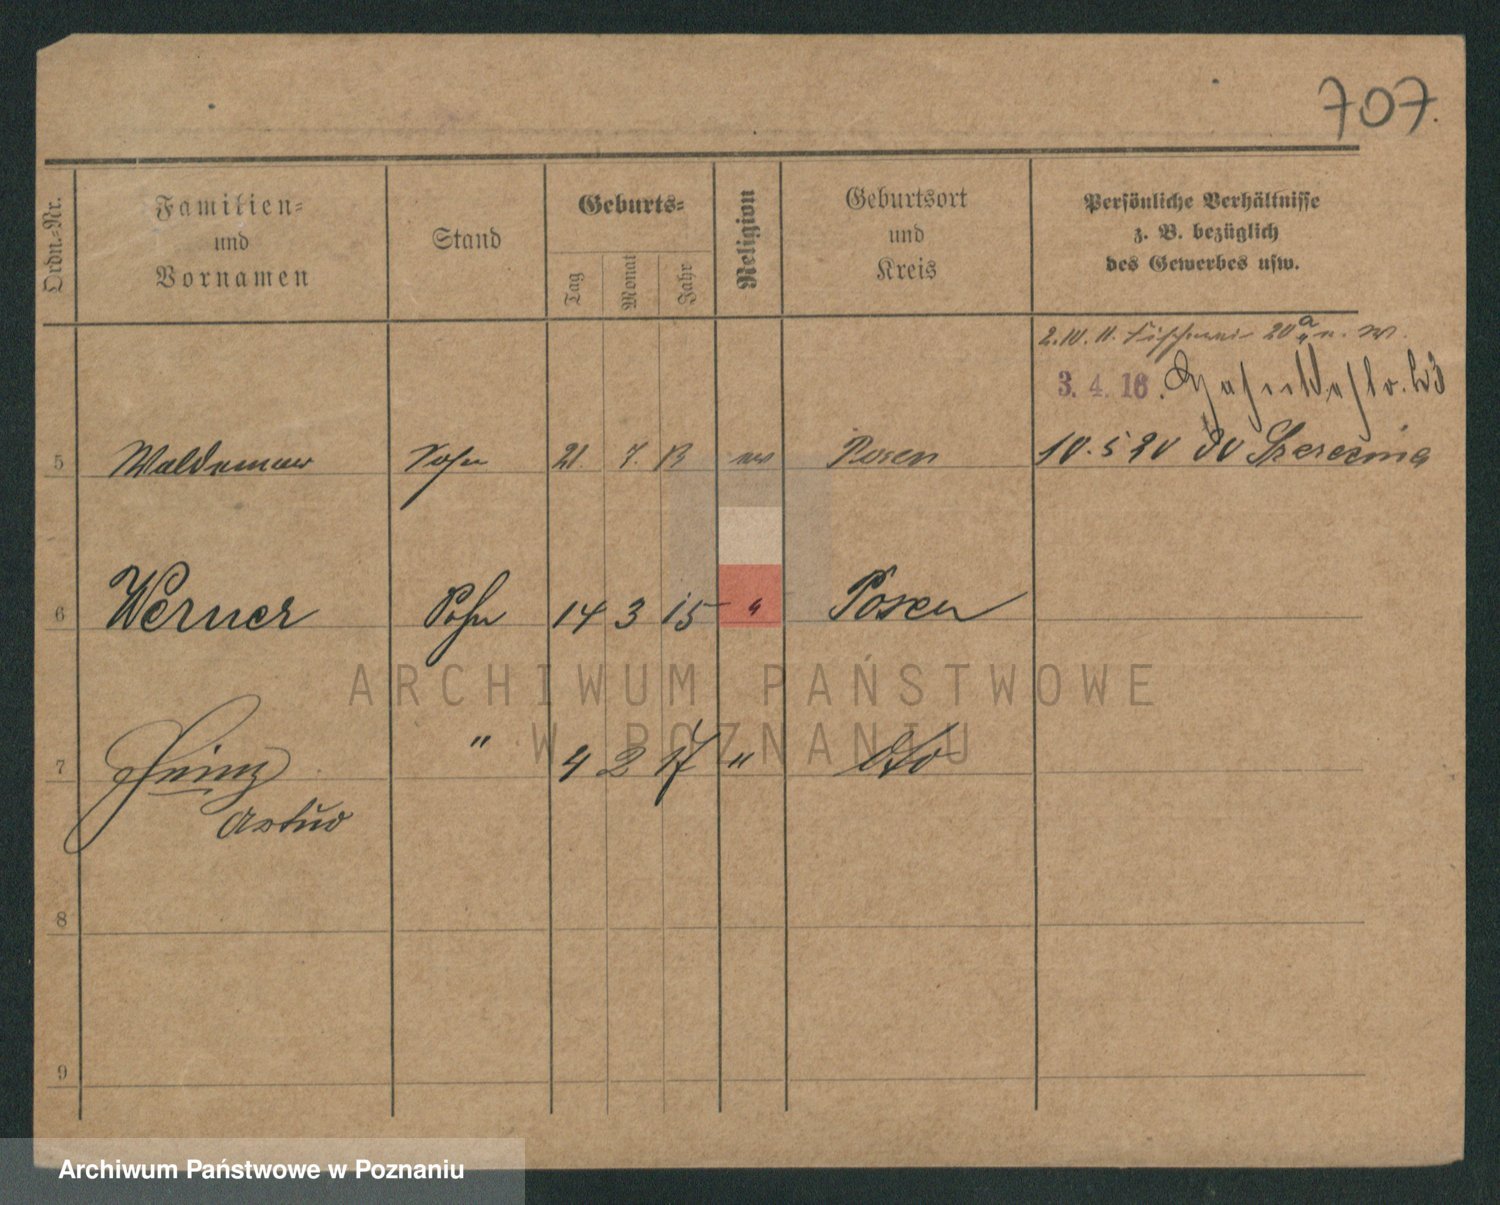 707.
Ordn.-Nr.
Familien-
und
Vornamen
Stand
Geburts-
Tag
Monat
Jahr
Religion
Geburtsort
und
Kreis
Persönliche Verhältnisse
z. B. bezüglich
des Gewerbes usw.
20a
3. 4. 16.
5 Waldemar Sohn 21. 7. 13 Posen 10. 5 20
6 Werner Sohn 14 3 15 " Posen
7 Heinz " 4 2 17 " dto
Artur
8
9
ARCHIWUM PAŃSTWOWE
W POZNANIU
Archiwum Państwowe w Poznaniu